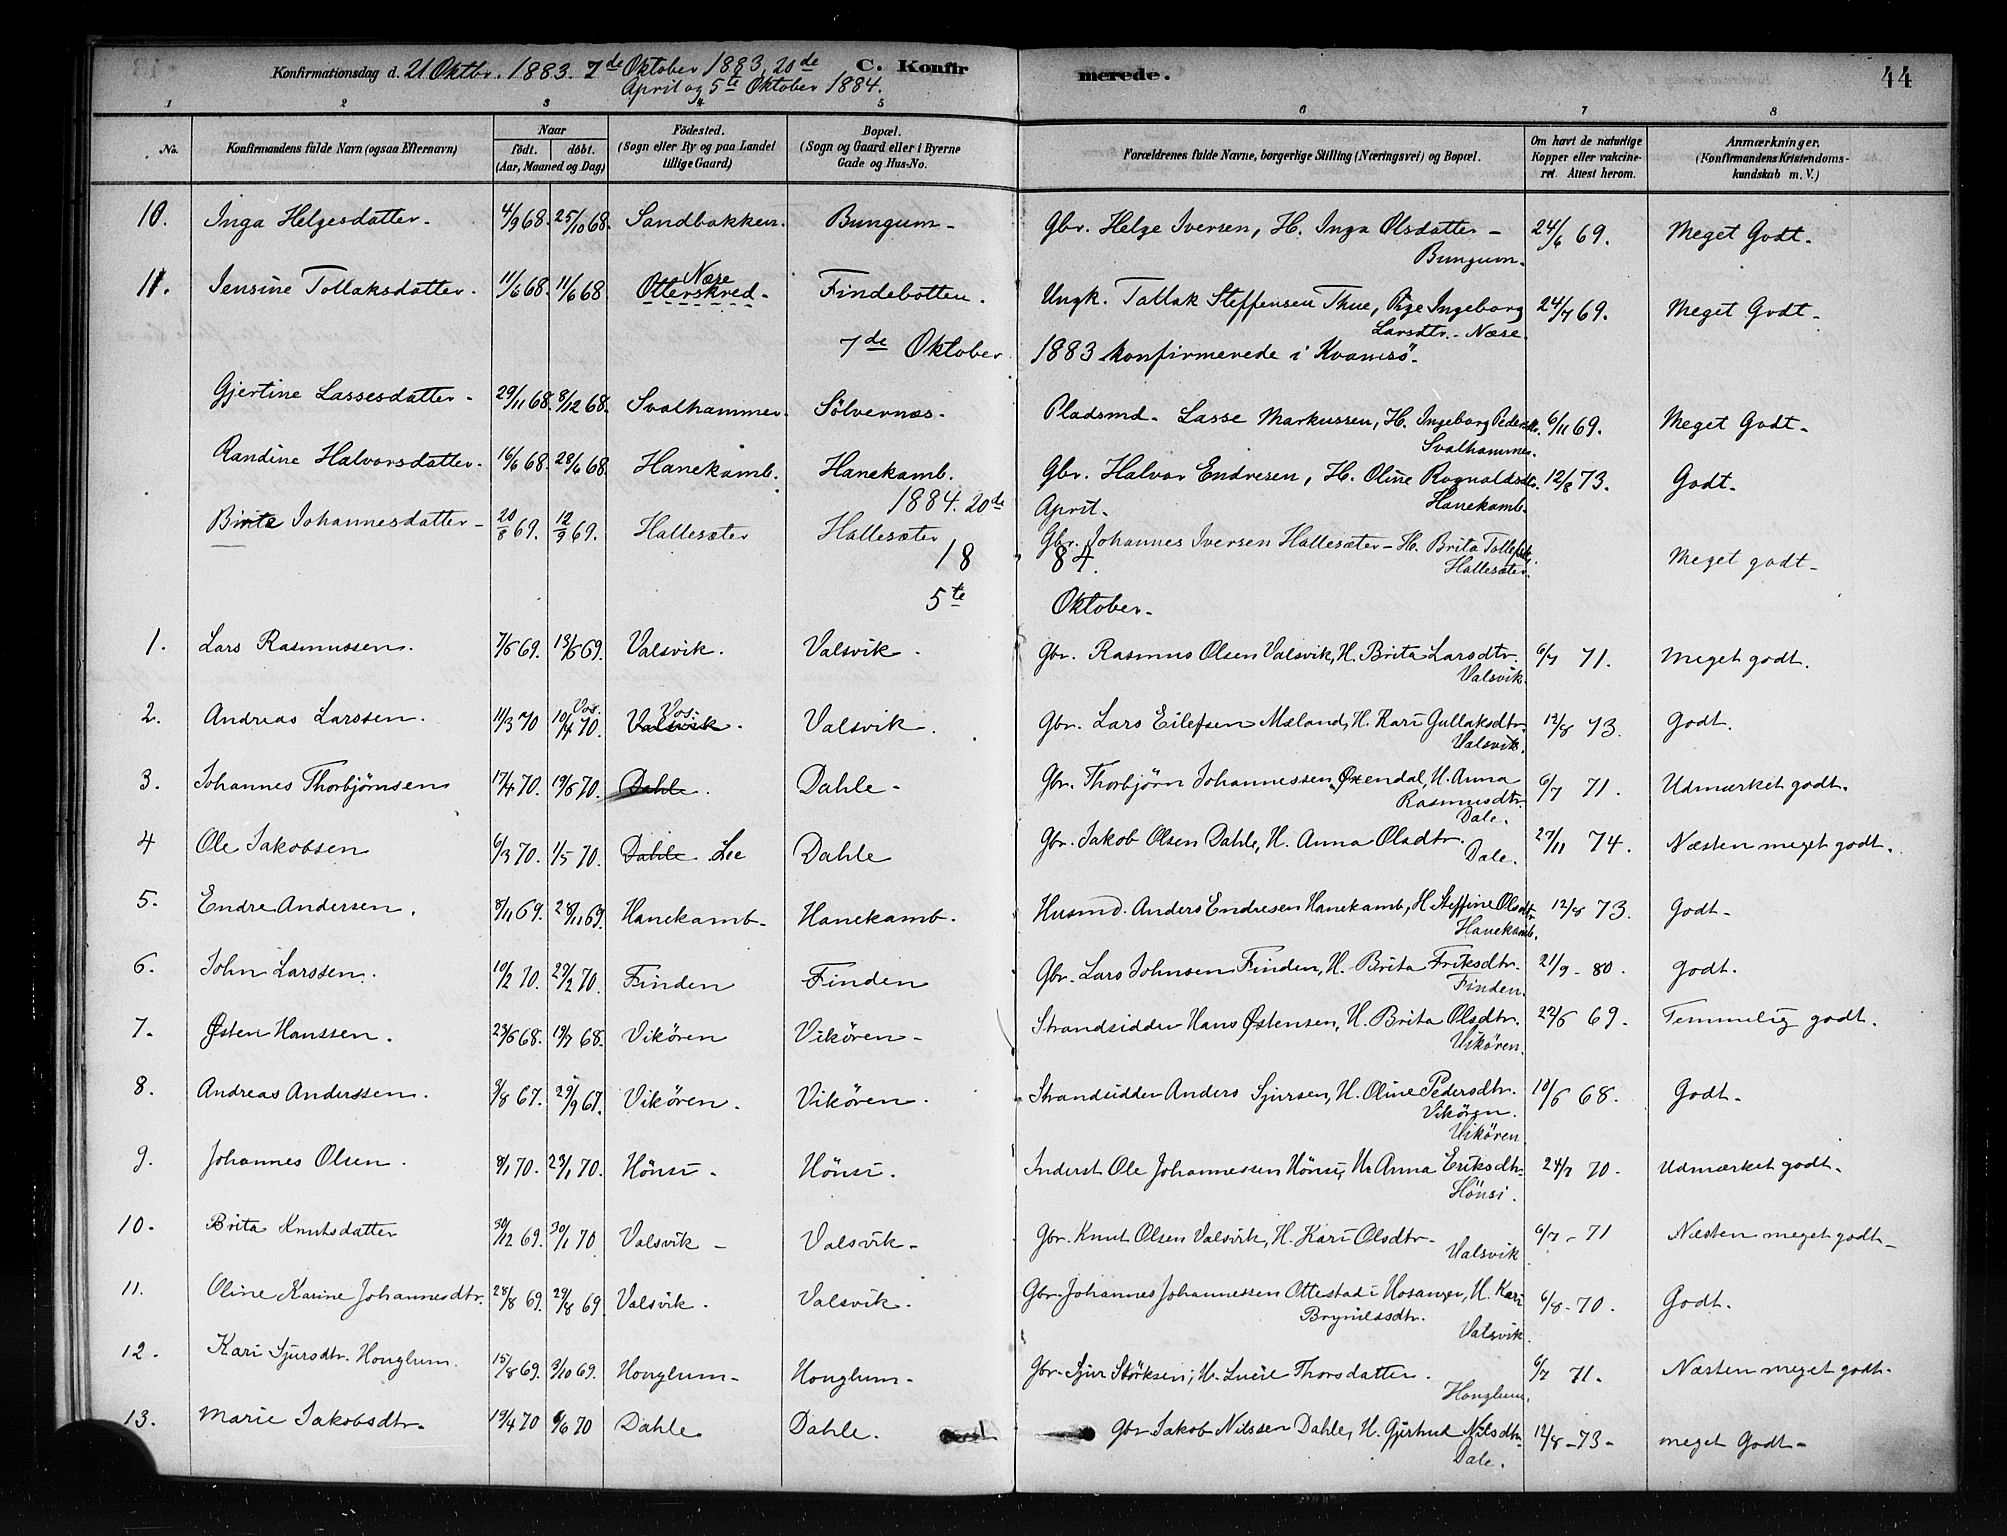 44
Konfirmationsdag d. 21 Oktbr. 1883. 7de Oktober 1883, 20de C. Konfirmerede.
April og 5te Oktober 1884.
1 2 3 4 5 6 7 8
No. Konfirmandens fulde Navn (ogsaa Efternavn) Naar født. døbt. (Aar, Maaned og Dag) Födested. (Sogn eller By og paa Landet tillige Gaard) Bopæl. (Sogn og Gaard eller i Byerne Gade og Hus-No. Forældrenes fulde Navne, borgerlige Stilling (Næringsvei) og Bopæl. Om havt de naturlige Kopper eller vakcineret. Attest herom. Anmærkninger, (Konfirmandens Kristendomskundskab m. V.)
10. Inga Helgesdatter. 4/9 68. 25/10 68. Sandbakken. Bungum. Gbr. Helge Iversen, H. Inga Olsdatter - 24/6 69. Meget Godt.
Bungum.
11. Jensine Tollaksdatter. 11/6 68. 11/6 68 Otterskred. Nære Findebotten. Ungk. Tollak Steffensen Thue, Pige Ingeborg 24/7 69. Meget Godt.
Larsdtr. Nære.
7de Oktober 1883 konfirmerede i Kvamsö.
Gjertine Lassesdatter. 29/11 68. 8/12 68. Svalhammer. Sölvernæs. Pladsmd. Lasse Markussen, H. Ingeborg Pedersdtr. 6/11 69. Meget Godt.
Svalhammer.
Randine Halvorsdatter. 16/6 68. 28/6 68. Hanekamb. Hanekamb. Gbr. Halvor Endresen, H. Oline Rognaldsdtr. 12/8 73. Godt.
Hanekamb.
1884. 20de April.
Birte Johannesdatter 20/8 69. 12/9 69. Hallesæter Hallesæter Gbr. Johannes Iversen Hallesæter - H. Brita Tollefsd. Meget godt.
Hallesæter.
18 84.
5te Oktober.
1. Lars Rasmussen. 7/6 69. 13/6 69. Valsvik. Valsvik. Gbr. Rasmus Olsen Valsvik, H. Brita Larsdtr. 6/7 71. Meget godt.
Valsvik.
2. Andreas Larssen. 11/3 70 10/4 70. Vos. Valsvik. Vos. Valsvik. Gbr. Lars Eilefsen Mæland, H. Kari Gullaksdtr. 12/8 73. Godt.
Valsvik.
3. Johannes Thorbjørnsen 17/4 70. 19/6 70. Dahle. Dahle. Gbr. Thorbjörn Johannessen Øxendal, H. Anna 6/7 71. Udmærket godt.
Rasmusdtr.
Dale.
4 Ole Jakobsen 6/3 70. 1/5 70. Dahle Lee Dahle Gbr. Jakob Olsen Dahle, H. Anna Olsdtr. 27/11 74. Næsten meget godt.
Dale.
5. Endre Andersen. 8/11 69. 28/11 69. Hanekamb. Hanekamb. Husmd. Anders Endresen Hanekamb, H. Steffine Olsdtr 12/8 73. Godt.
Hanekamb.
6. John Larssen. 10/2 70. 27/2 70. Finden Finden Gbr. Lars Johnsen Finden, H. Brita Eriksdtr. 21/9 - 80. Godt.
Finden.
7. Østen Hanssen. 23/6 68. 19/7 68. Vikören Vikören. Strandsidder Hans Østensen, H. Brita Olsdtr. 22/6 69. Temmelig godt.
Vikören.
8. Andreas Anderssen. 3/8 67. 29/9 67. Vikören. Vikören. Strandsidder Anders Sjursen, H. Oline Pedersdtr. 10/6 68. Godt.
Vikören.
Vikören.
9. Johannes Olsen. 8/1 70. 23/1 70. Hönsi. Hönsi. Inderst Ole Johannessen Hönsi, H. Anna Eriksdtr. 24/7 70. Udmærket godt.
Hönsi.
10. Brita Knutsdatter 30/12 69. 30/1 70 Valsvik Valsvik. Gbr. Knut Olsen Valsvik, H. Kari Olsdtr. 6/7 - 71 Næsten meget godt.
Valsvik
11. Oline Karine Johannesdtr. 28/8 69. 29/8 69 Valsvik. Valsvik. Gbr. Johannes Johannessen Ottestad i Hosanger, H. Kari 6/8 - 70. Godt.
Brynildsdtr.
Valsvik.
12. Kari Sjursdtr. Honglum. 15/8 69. 3/10 69. Honglum. Honglum. Gbr. Sjur Störksen, H. Lucie Thorsdatter. 6/7 71. Næsten meget godt.
Honglum.
13. Marie Jakobsdtr. 19/4 70 6/6 70 Dahle Dahle. Gbr. Jakob Nilssen Dahle, H. Gjertrud Nilsdtr. 12/8 - 73 - Meget Godt.
Dale.